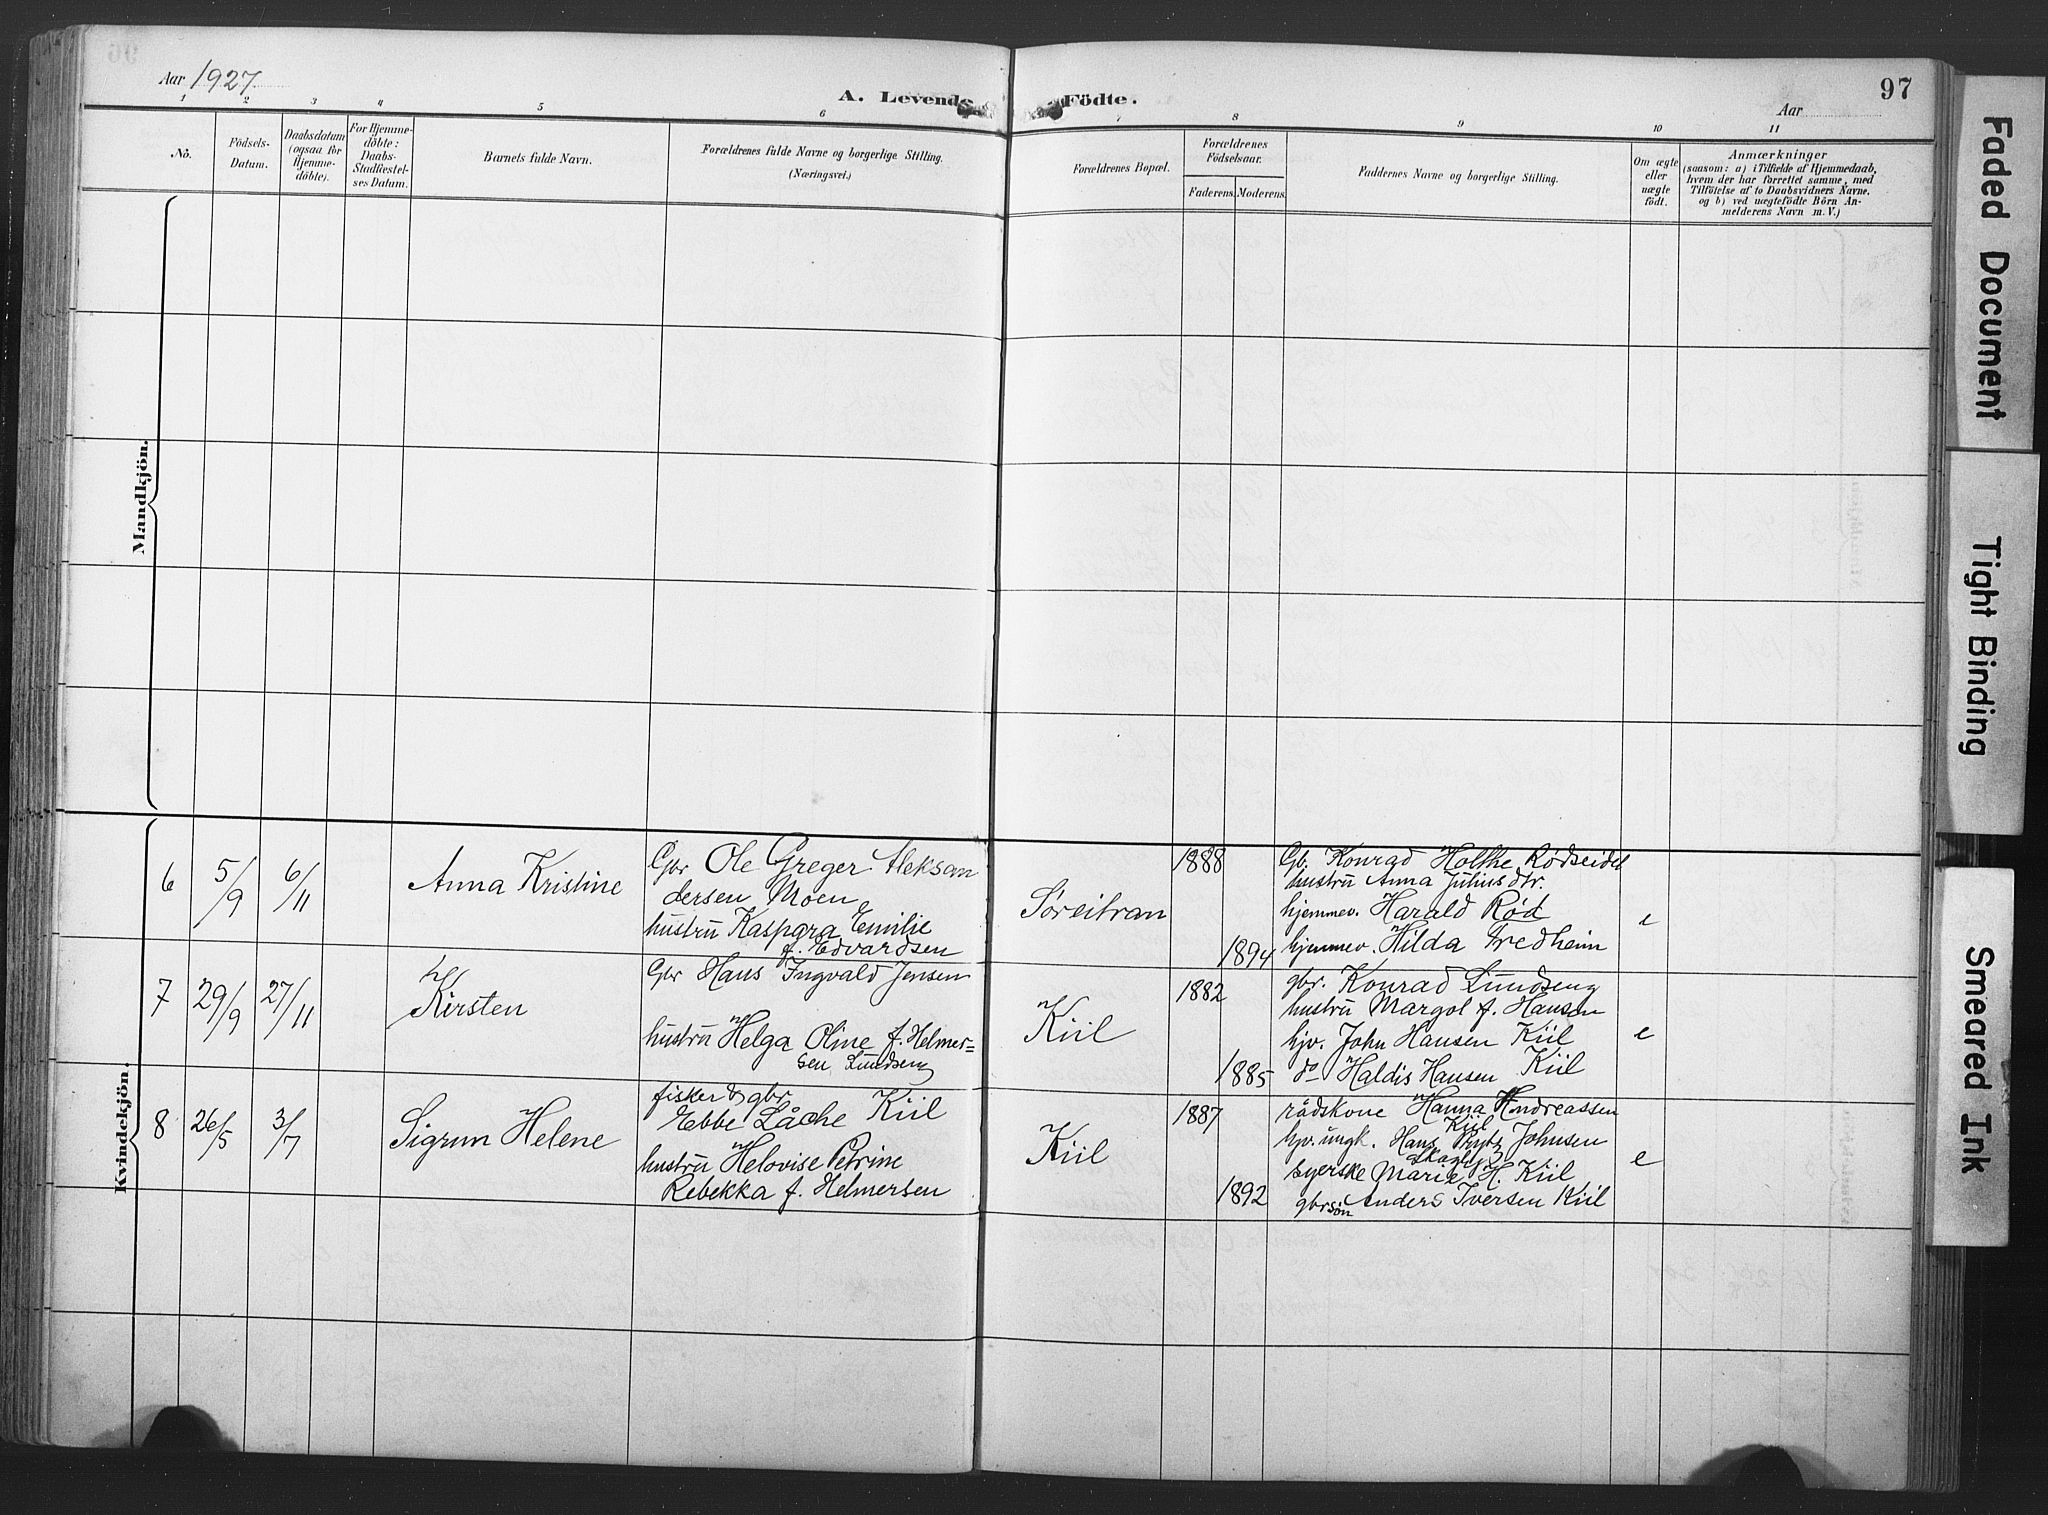 Aar 1927
A. Levende Födte.
97
Aar
1 2 3 4 5 6 7 8 9 10 11
No.
Födsels-
Datum.
Daabsdatum
(ogsaa for
Hjemme-
döbte).
For Hjemme-
döbte:
Daabs-
Stadfæstel-
ses Datum.
Barnets fulde Navn.
Forældrenes fulde Navne og borgerlige Stilling.
(Næringsvei.)
Forældrenes Bopæl.
Forældrenes
Födselsaar.
Faderens. Moderens.
Faddernes Navne og borgerlige Stilling.
Om ægte
eller
uægte
födt.
Anmærkninger
(saasom: a) i Tilfælde af Hjemmedaab,
hvem der har forrettet samme, med
Tilföielse af to Daabsvidners Navne.
og b) ved uægtefödte Börn An-
melderens Navn m. V.)
Mandkjön.
Kvindekjön.
6
5/9
6/11
Anna Kristine
Gbr Ole Greger Aleksan
dersen Moen
hustru Kaspara Emilie
f. Edvardsen
Søreitran
1888
1894
Gb. Konrad Holthe Rødseidet
hustru Anna Juliusdtr.
hjemmev. Harald Rød
hjemmev. Hilda Fredheim
e
7
29/9
27/11
Kirsten
Gbr Hans Ingvald Jensen
hustru Helga Oline f. Helmer=
sen Lundseng
Kiil
1882
1885
gbr. Konrad Lundseng
hustru Margot f. Hansen
hjv. John Hansen Kiil
do Haldis Hansen Kiil
e
8
26/5
3/7
Sigrun Helene
fisker & gbr
Ebbe Låche Kiil
hustru Helovise Petrine
Rebekka f. Helmersen
Kiil
1887
1892
rådskone Hanna Andreassen
Kiil
hjv. ungk. Hans Johnsen
syerske Marie H. Kiil
gbrsøn Anders Iversen Kiil
e
Faded Document
Tight Binding
Smeared Ink